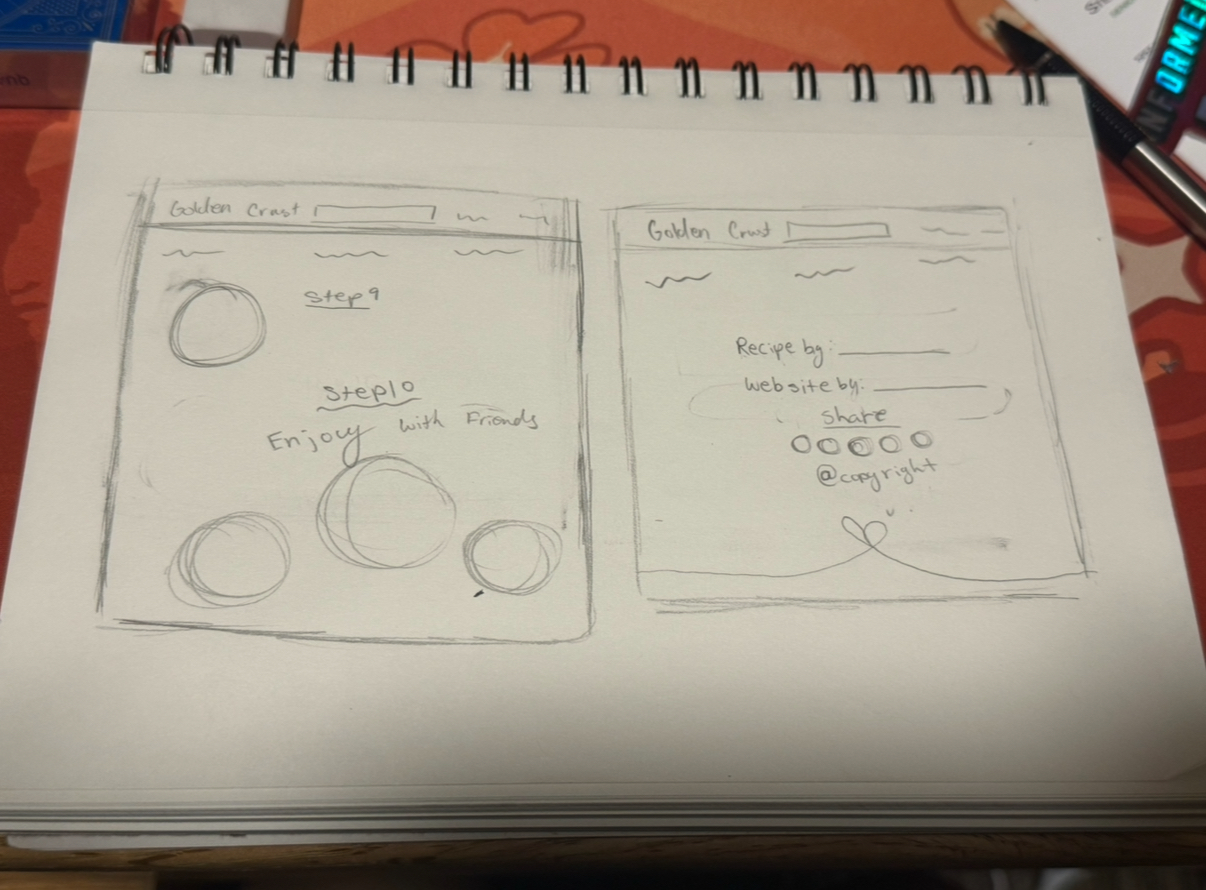 Golden Crust
Step 9
Step 10
Enjoy with Friends
Golden Crust
Recipe by:
Website by:
Share
@copyright
ORME